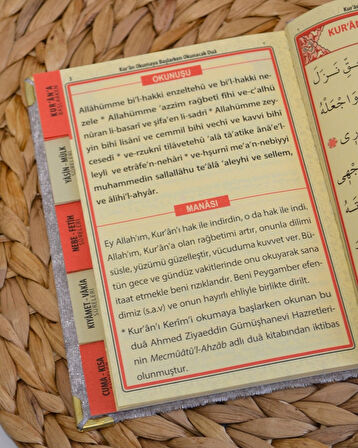 3
Kur'ân Okumaya Başlarken Okunacak Duâ
OKUNUŞU
Allâhümme bi'l-hakki enzeltehû ve bi'l-hakki ne-
zele * Allâhümme 'azzim rağbetî fîhi ve-c'alhü
nûran li-basarî ve şifa'en li-sadrî * Allâhümme zey-
yin bihî lisânî ve cemmil bihî vechî ve kavvi bihî
cesedî * ve-rzuknî tilâvetehû 'alâ tâ'atike ânâ'e'l-
leyli ve etrâfe'n-nehâri * ve-hşurnî me'a'n-nebiyyi
muhammedin sallallâhu te'âlâ 'aleyhi ve sellem,
ve âlihi'l-ahyâr.
MANÂSI
Ey Allah'ım, Kur'ân'ı hak ile indirdin, o da hak ile indi,
Allah'ım, Kur'ân'a olan rağbetimi artır, onunla dilimi
süsle, yüzümü güzelleştir, vücuduma kuvvet ver. Bü-
tün gece ve gündüz vakitlerinde onu okuyarak sana
itaat etmekle beni rızıklandır. Beni Peygamber efen-
dimiz (s.a.v) ve onun hayırlı ehliyle birlikte dirilt.
* Kur'ân'ı Kerim'i okumaya başlarken okunan bu
duâ Ahmed Ziyaeddin Gümüşhanevi Hazretleri-
nin Mecmûâtü'l-Ahzâb adlı duâ kitabından iktibas
olunmuştur.
KUR'ÂN'A
YÂSÎN - MÜLK
SÛRELERİ
NEBE - FETİH
SÛRELERİ
KIYÂMET - VÂKIA
SÛRELERİ
CUMA - KISA
Kur'ân Okumaya Başlarken
KUR'ÂN